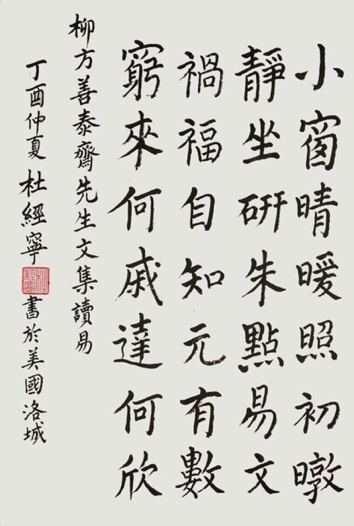 小窗晴暖照初暾
靜坐研朱點易文
禍福自知元有數
窮來何戚達何欣
柳方善泰齋先生文集讀易
丁酉仲夏杜經寧
書於美國洛城